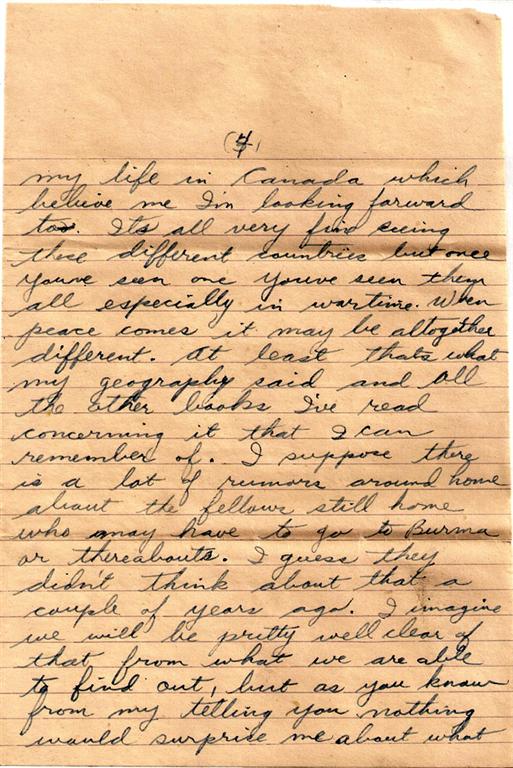 (4)
my life in Canada which
believe me I'm looking forward
too. Its all very fine seeing
these different countries but once
youve seen one youve seen them
all especially in wartime. When
peace comes it may be altogether
different. At least thats what
my geography said and all
the other books I've read
concerning it that I can
remember of. I suppose there
is a lot of rumors around home
about the fellows still home
who may have to go to Burma
or thereabouts. I guess they
didn't think about that a
couple of years ago. I imagine
we will be pretty well clear of
that from what we are able
to find out, but as you know
from my telling you nothing
would surprise me about what